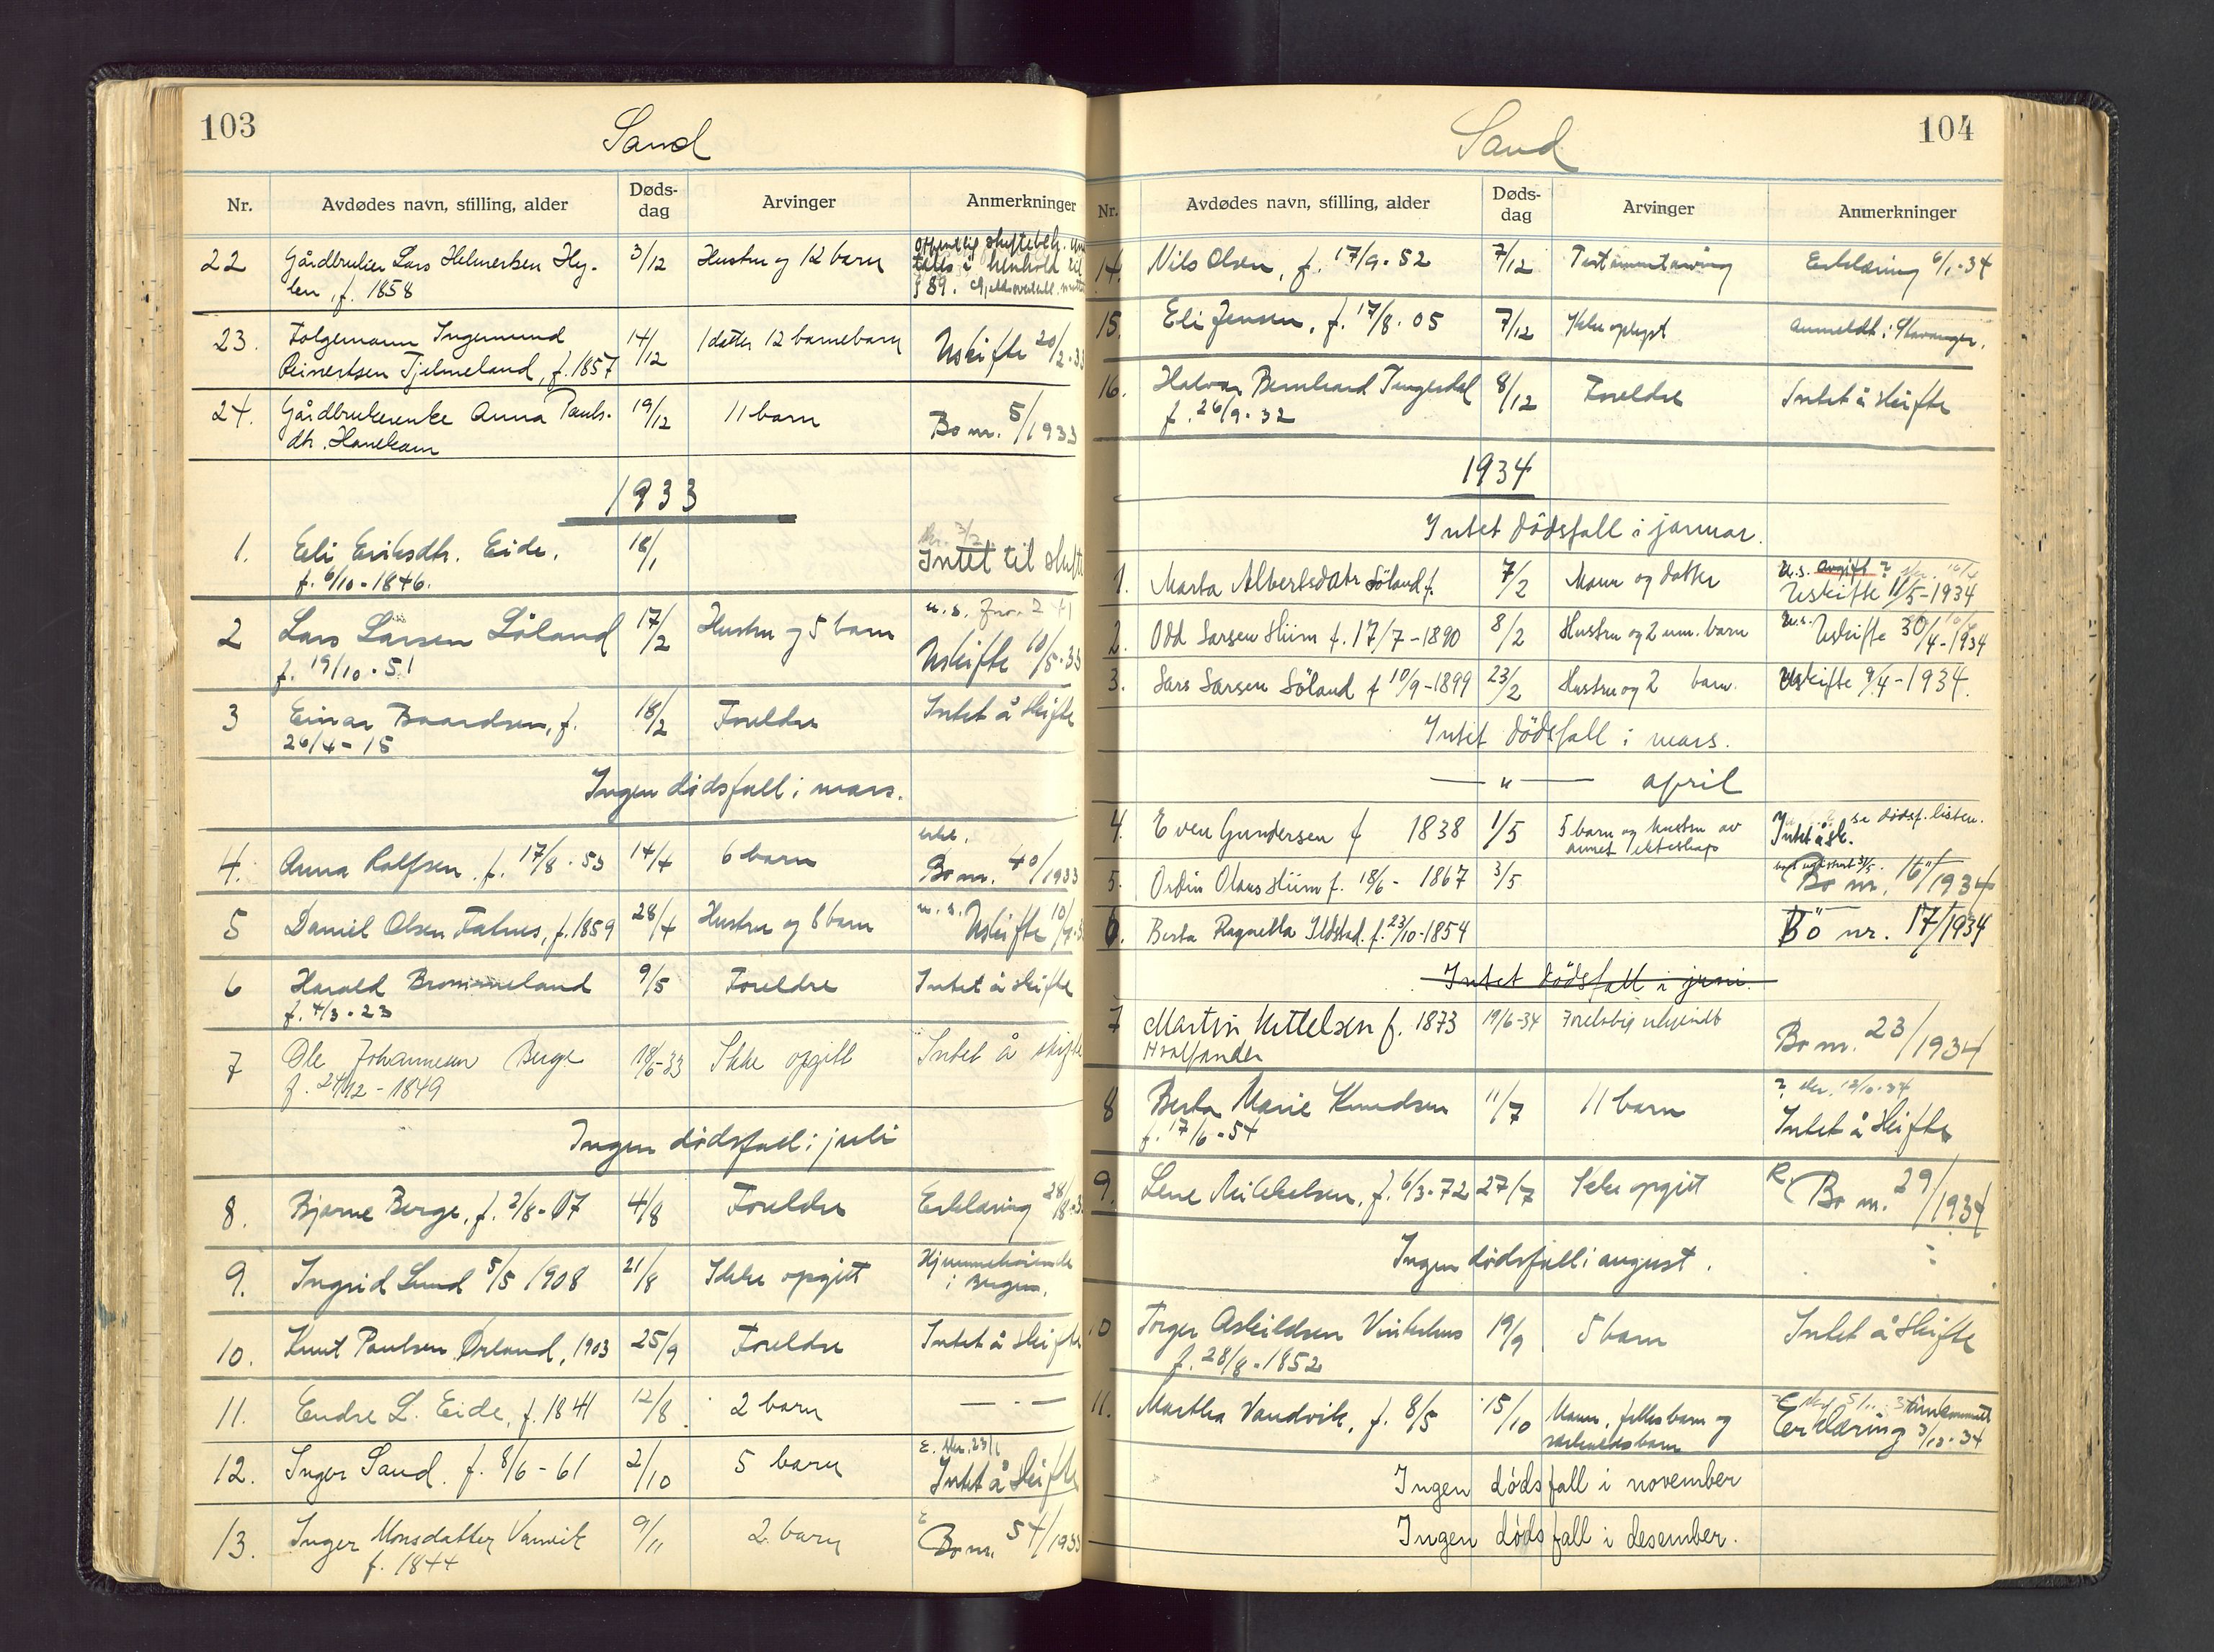 103
Sand
Nr. Avdødes navn, stilling, alder Døds-dag Arvinger Anmerkninger
22 Gårdbruker Lars Helmertsen Hy- 3/12 Hustru og 12 barn Offentlig skiftebeh.
len, f. 1858 i henhold til
§ 89.
23. Folgemann Ingemund 14/12 1 datter 12 barnebarn Uskifte 20/2-33
Reinertsen Tjelmeland, f. 1857
24. Gårdbrukerenke Anna Pauls- 19/12 11 barn Bo nr. 5/1933
dtr. Hanekam
1933
1. Eli Eriksdtr. Eide, 18/1 Intet til skifte
f. 6/10-1846.
2 Lars Larsen Løland 17/2 Hustru og 5 barn u.s.
f. 19/10.51 Uskifte 10/5-33
3 Einar Baardsen, f. 18/2 Foreldre Intet å skifte
26/4-15
Ingen dødsfall i mars.
4. Anna Rolfsen, f. 17/8.53 14/4 6 barn Bo nr. 40/1933
5 Daniel Olsen Fatnes, f. 1859 28/4 Hustru og 8 barn u.s. Uskifte
6 Harald Brommeland 9/5 Foreldre Intet å skifte
f. 4/3.23
7 Ole Johannesen Berge 18/6-33 Ikke opgitt Intet å skifte
f. 24/12-1849
Ingen dødsfall i juli
8. Bjarne Berge, f. 2/8-07 4/8 Foreldre Erklæring
9. Ingrid Lund 5/5 1908 21/8 Ikke opgitt Hjemmehørende
i Bergen.
10. Knut Paulsen Ørland, 1903 25/9 Foreldre Intet å skifte
11. Endre L. Eide, f. 1841 12/8 2 barn — " —
12. Inger Sand. f. 8/6-61 2/10 5 barn Intet å skifte
13. Inger Monsdatter Vanvik 9/11 2 barn Bo nr. 54/1933
f. 1844
104
Sand
Nr. Avdødes navn, stilling, alder Døds-dag Arvinger Anmerkninger
14. Nils Olsen, f. 17/9.52 7/12 Testamentarving Erklæring 6/1-34
15. Eli Jensen, f. 17/8.05 7/12 Ikke oplyst Anmeldt i Stavanger.
16. Halvor Bernhard Tengesdal 8/12 Foreldre Intet å skifte
f. 26/9.32
1934
Intet dødsfall i januar.
1. Marta Albertsdatr Løland f. 7/2 Mann og datter u.s. avgift?
Uskifte 11/5-1934
2. Odd Larsen Hiim f. 17/7-1890 8/2 Hustru og 2 um. barn u.s. Uskifte 30/4-1934
3. Lars Larsen Løland f 10/9-1899 23/2 Hustru og 2 barn. Uskifte 9/4-1934.
Intet dødsfall i mars.
— " — april
4. Even Gundersen f 1838 1/5 5 barn og hustru av se dødsf.listen.
annet ekteskap Intet å sk.
5. Ordin Olaus Hiim f. 18/6-1867 3/5 Bo nr. 16/1934
6. Berta Ragnella Ilstad. f. 23/10-1854 Bo nr. 17/1934
Intet dødsfall i juni.
7 Martin Kittelsen f. 1873 19/6-34 Foreløbig ukjendt Bo nr. 23/1934
Hvalfanger
8 Berta Marie Knudsen 11/7 11 barn
f. 17/6-54 Intet å skifte
9. Lene Mikkelsen, f. 6/3-72 27/7 Ikke opgitt Bo nr. 29/1934
Ingen dødsfall i august.
10 Torger Askildsen Vinkehus 19/9 5 barn Intet å skifte
f. 28/8-1852
11. Martha Vandvik, f. 8/5 15/10 Mann, fellesbarn og
særkuldsbarn Erklæring 3/12-34
Ingen dødsfall i november
Ingen dødsfall i desember.